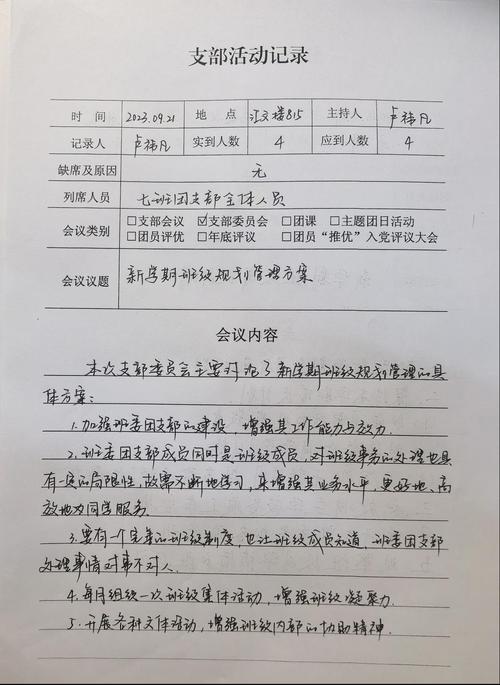 支部活动记录
时 间 2023.09.21 地 点 汇文楼815 主持人 卢祎凡
记录人 卢祎凡 实到人数 4 应到人数 4
缺席及原因 无
列席人员 七班团支部全体人员
会议类别 □支部会议 ☑支部委员会 □团课 □主题团日活动
□团员评优 □年底评议 □团员“推优”入党评议大会
会议议题 新学期班级规划管理方案
会议内容
本次支部委员会主要讨论了新学期班级规划管理的具
体方案：
1.加强班委团支部的建设，增强其工作能力与效力.
2.班委团支部成员同时是班级成员，对班级事务的处理也具
有一定的局限性，故需不断地学习，来增强其业务水平，更好地、高
效地为同学服务.
3.要有一个完善的班级制度，也让班级成员知道，班委团支部
处理事情对事不对人.
4.每月组织一次班级集体活动，增强班级凝聚力.
5.开展各种文体活动，增强班级内部的协助精神.